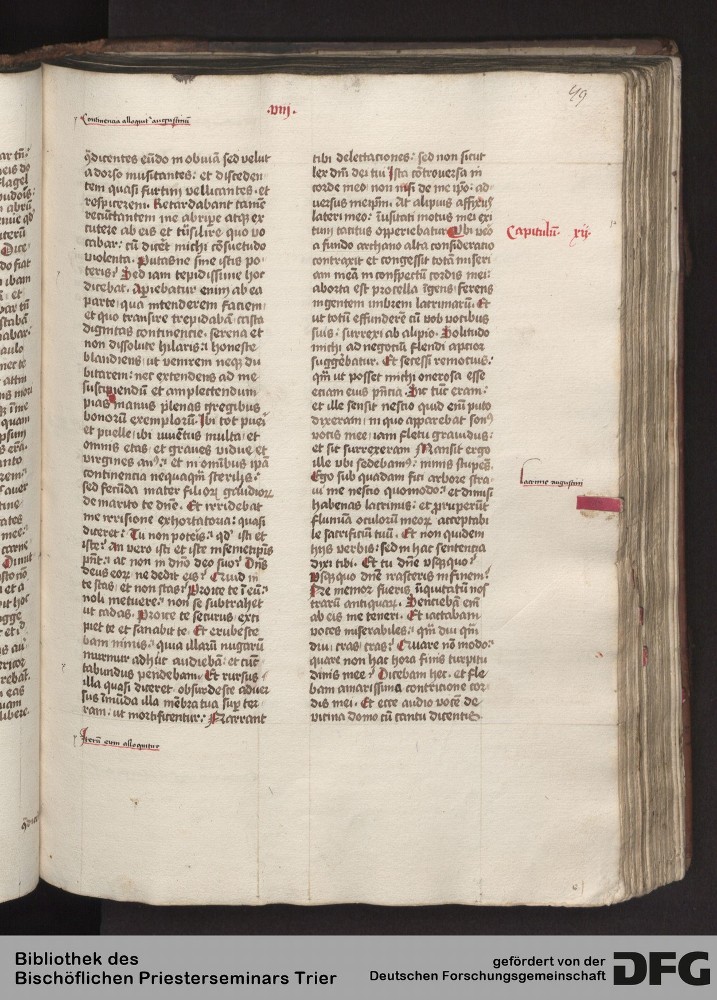 .viii.
49
Continencia alloquit augustinū
q̄dicentes eūdo in obuiā sed velut
a dorso musitantes: et disceden
tem quasi furtim vellicantes. et
respicerem. Retardabant tamē
recūctantem me abripe atqȝ ex
cutere ab eis et tūsilire quo vo
cabar: cū dicēt michi cōsuetudo
violenta. Putas ne sine istis po
teris? Sed iam tepidissime hoc
dicebat. Apiebatur enim ab ea
parte: qua intenderem faciem:
et quo transire trepidabā: casta
dignitas continencie. serena et
non dissolute hilaris: honeste
blandiens: ut venirem neqȝ du
bitarem: nec extendens ad me
suscipiendū et amplectendum
pias manus plenas gregibus
bonorū exemplorū. Ibi tot pueri
et puelle: ibi iuuētus multa: et
omnis etas: et graues vidue et
virgines an⁹: et in omnibus ipā
continencia nequaqm̄ sterilis:
sed fecūda mater filiorum gaudiorum
de marito te dn̄e. Et irridebat
me irrisione exhortatoria: quasi
diceret: Tu non poteris: qd̄ isti et
iste? An vero isti et iste in semetipis
pn̄t: ac non in dn̄o deo suo? Dn̄s
deus eorum me dedit eis: Cur in
te stas et non stas? Proice te ī eū:
noli metuere: non se subtrahet
ut cadas. Proice te securus: exci
piet te et sanabit te. Et erubesce
bam nimis: quia illarū nugarū
murmur adhuc audiebā: et cūc
tabundus pendebam. Et rursus
illa quasi diceret: obsurdesce aduer
sus īmūda illa mēbra tua suꝑ ter
ram: ut mortificentur. Narrant
Iterū eum alloquitur
tibi delectaciones: sed non sicut
lex dn̄i dei tui. Ista cōtrouersia in
corde meo: non nisi de me ip̄o: ad
uersus meipm̄. At alipius affixus
lateri meo: īusitati motus mei exi
tum tacitus opperiebatur. Ubi vero
a fundo archano alta consideratio
contraxit et congessit totā miseri
am meā in conspectū cordis mei:
aborta est procella īgens: ferens
ingentem imbrem lacrimarū. Et
ut totū effunderē cū vocibus
suis: surrexi ab alipio. Solitudo
michi ad negociū flendi apcior
suggebatur. Et secessi remocius:
qm̄ ut posset michi onerosa esse
eciam eius pn̄cia. Sic tūc eram:
et ille sensit: nescio quid enī puto
dixeram: in quo apparebat son⁹
vocis mee: iam fletu grauidus:
et sic surrexeram. Mansit ergo
ille vbi sedebam⁹: nimis stupēs.
Ego sub quadam fici arbore stra
ui me nescio quomodo: et dimisi
habenas lacrimis: et pruperūt
flumina oculorū meorum acceptabi
le sacrificiū tuū. Et non quidem
hijs verbis: sed in hac sentencia
dixi tibi. Et tu dn̄e vsqȝquo?
Vsqȝquo dn̄e irasceris in finem?
Ne memor fueris īiquitatū nos
trarū antiquarum. Senciebā em̄
ab eis me teneri. Et iactabam
voces miserabiles: qm̄ diu qm̄
diu: cras: cras? Quare nō modo:
quare non hac hora finis turpitu
dinis mee? Dicebam hec. et fle
bam amarissima contricione cor
dis mei. Et ecce audio vocē de
vicina domo cū cantu dicentis
Capitulū xij.
Lacrime augustini
Bibliothek des
Bischöflichen Priesterseminars Trier
gefördert von der
Deutschen Forschungsgemeinschaft
DFG